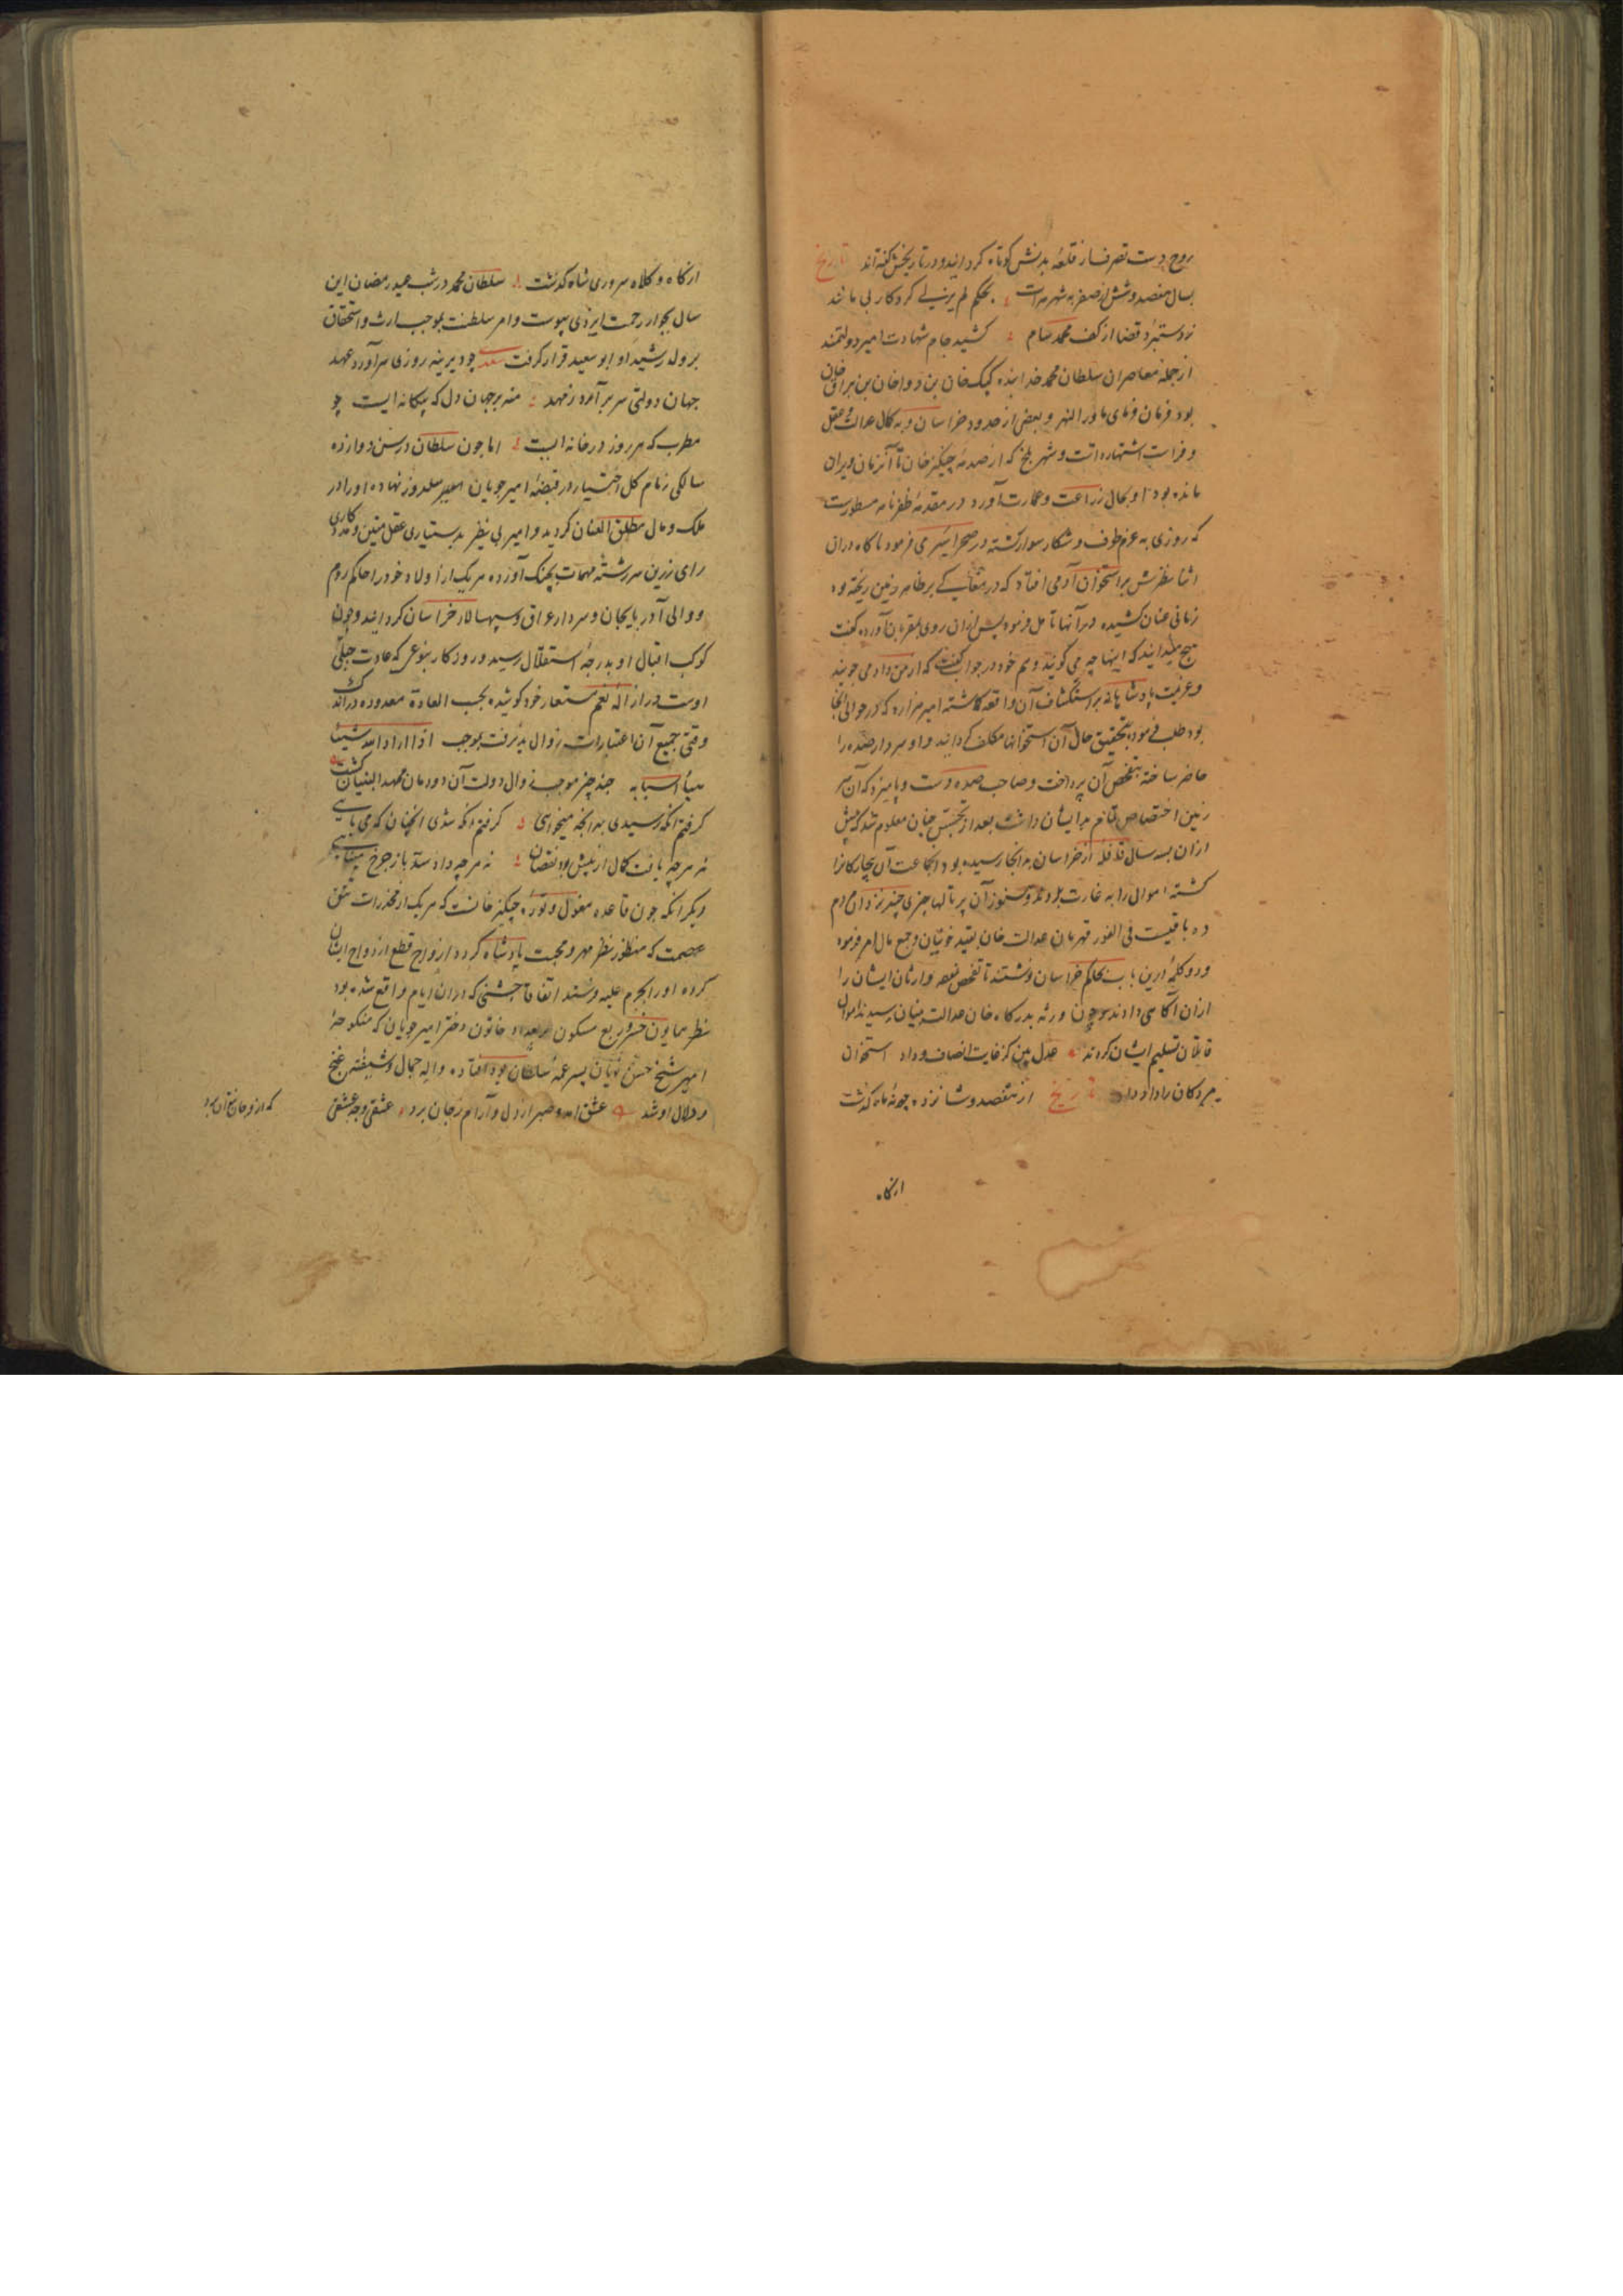 بروح دست تصرف از قلعهٔ بدنش کوتاه کردانید و در تاریخش کفته‌اند تاریخ
بسال هفصد و شش از صفر به شهر هرات بحکم لم یزلی کردکار بی مانند
ز دستبرد قضا از کف محمد سام کشید جام شهادت امیر دولتمند
از جمله معاصران سلطان محمد خدابنده کبک خان بن دوا خان بن براق خان
بود فرمان فرمای ماورا النهر و بعضی از حدود خراسان و به کمال عدالت و عقل
و فراست اشتهار داشت و شهر بلخ که از صدمهٔ چنکیز خان تا آنزمان ویران
مانده بود او بحال زراعت و عمارت آورد در مقدمهٔ ظفرنامه مسطورست
که روزی به عزم طوف و شکار سوار کشته در صحرا سیری فرمود ناکاه دران
اثنا نظرش بر استخوان آدمی افتاد که در مغاکی بر ظاهر زمین ریخته بود
زمانی عنان کشیده در آنها تامل فرمود پس ازان روی بمقربان آورده کفت
هیچ میدانید که اینها چه می کویند و هم خود در جواب کفت که از من داد می جویند
و عزیمت پادشاهانه بر استکشاف آن واقعه کماشته امیر هزاره که در حوالی آنجا
بود طلب فرموده بتحقیق حال آن استخوانها مکلف کردانید و او سردار صده را
حاضر ساخته بتفحص آن پرداخت و صاحب صده دست و پا میزد که آن سر
زمین اختصاص تمام بدیشان داشت بعد از تجسس چنان معلوم شد که پیش
ازان بسه سال قافله از خراسان به آنجا رسیده بود آنجماعت آن بیچارکانرا
کشته اموال را به غارت بردند و هنوز آن پرتالها چیزی چند نزد آن مردم
ده باقیست فی الفور قهرمان عدالت خان بقید خونیان و جمع مال امر فرمود
و دو کلمهٔ ازین باب بحاکم خراسان نوشتند تا تفحص نموده وارثان ایشان را
ازان آکاهی دادند و چون ورثه بدرکاه خان عدالت بنیان رسیدند اموال
قاتلان تسلیم ایشان کردند عدل بین کز غایت انصاف و داد استخوان
مردکان را داد داد تاریخ از هفصد و شانزده چو نه ماه کذشت
ازکاه
ازکاه و کلاه سروری شاه کذشت سلطان محمد در شب عید رمضان این
سال بجوار رحمت ایزدی پیوست و امر سلطنت بموجب ارث و استحقاق
بر ولد رشید او ابو سعید قرار کرفت سعدی چو دیرینه روزی سرآورد عهد
جهان دولتی سر برآرد ز مهد منه بر جهان دل که بیکانه ایست چو
مطرب که هر روز در خانه ایست اما چون سلطان در سن دوازده
سالکی زمام کل اختیار در قبضهٔ امیر چوپان سلدوز نهاده او را در
ملک و مال مطلق العنان کردید و امیر بی نظیر بدستیاری عقل متین و مددکاری
رای رزین سررشتهٔ مهمات بچنک آورده هر یک از اولاد خود را حاکم روم
و والی آذربایجان و سردار عراق و سپهسالار خراسان کردانید و چون
کوکب اقبال او بدرجهٔ استقلال رسید و روزکار بنوعی که عادت جبلی
اوست در ازالهٔ نعم مستعار خود کوشیده بحسب العادة معدوده در اندک
وقتی جمیع آن اعتبارات زوال پذیرفت بموجب اذا اراد الله شیئا
هیأ اسبابه چند چیز موجب زوال دولت آن دودمان ممهد البنیان کشت
کرفتم آنکه رسیدی بدانچه میخواهی کرفتم آنکه شدی آنچنان که می بایی
نه هر چه یافت کمال از پیش بود نقصان نه هر چه داد ستد باز چرخ مینایی
دیکر آنکه چون قاعده مغول و تورهٔ چنکیز خانست که هر یک از مخدرات تتق
عصمت که منظور نظر مهر و محبت پادشاه کردد ازواج قطع ازدواج ایشان
کرده او را بحرم علیه فرستند اتفاقا در جشنی که دران ایام واقع شده بود
نظر همایون خسرو ربع مسکون بر بغداد خاتون دختر امیر چوپان که منکوحهٔ
امیر شیخ حسن نویان پسر عمهٔ سلطان بود افتاده واله جمال و شیفتهٔ غنج
و دلال او شد عشق آمد و صبر از دل و آرام ز جان برد عشقی و چه عشقی
که ازو جان نتوان برد